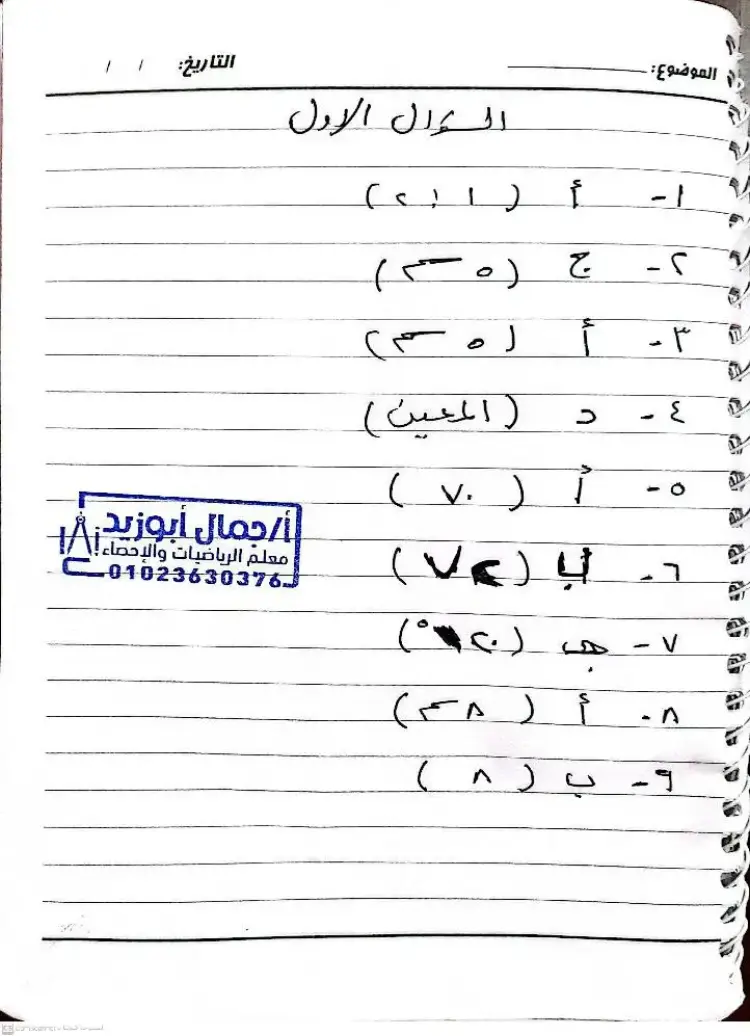 الموضوع:
التاريخ: / /
السؤال الاول
١- أ (٢:١)
٢- ج
٣- أ
٤- د (المعين)
٥- أ (٧٠)
٦- ب (٧٢)
٧- جـ (٢٠°)
٨- أ
٩- ب (٨)
أ/جمال أبوزيد
معلم الرياضيات والإحصاء
01023630376